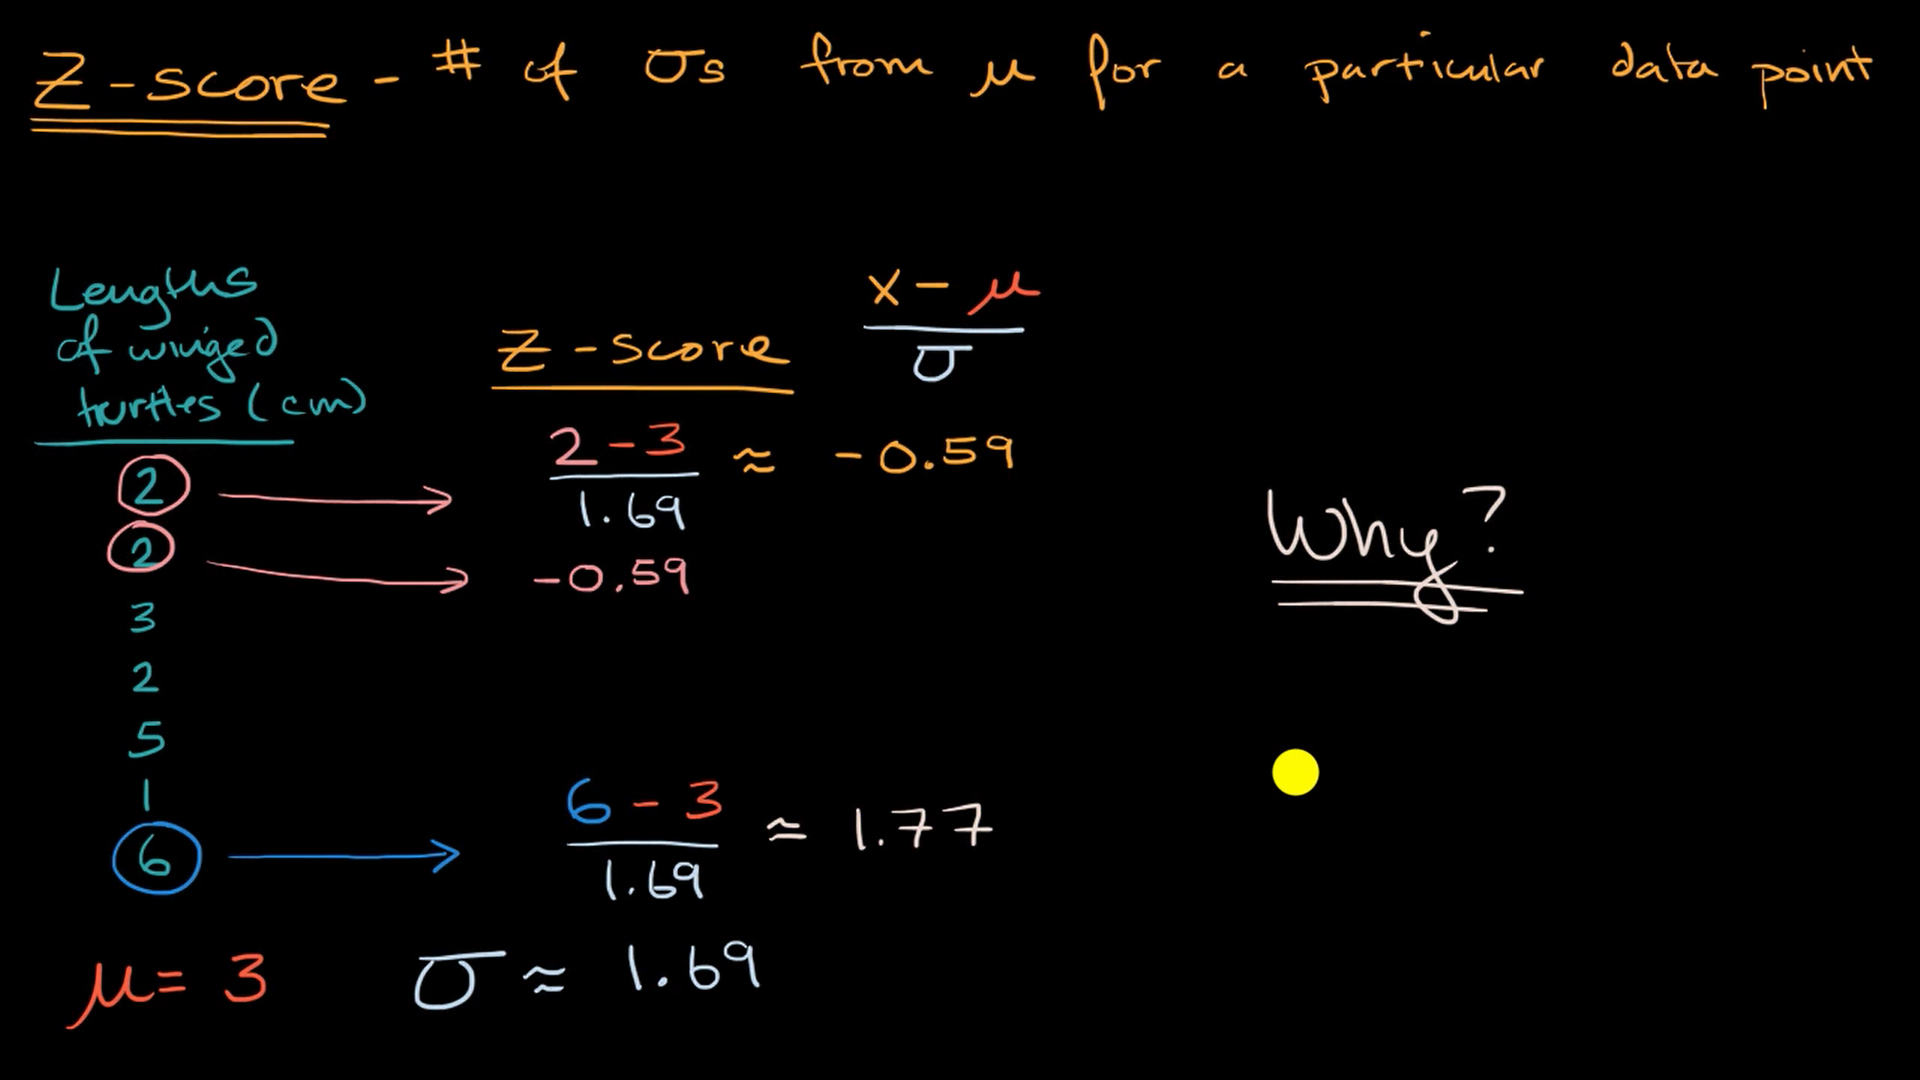 Z-score - # of σs from μ for a particular data point
Lengths
of winged
turtles (cm)
Z-score
x - μ
σ
2
2 - 3
1.69
≈ -0.59
2
-0.59
3
2
5
1
6
6 - 3
1.69
≈ 1.77
μ = 3
σ ≈ 1.69
Why?